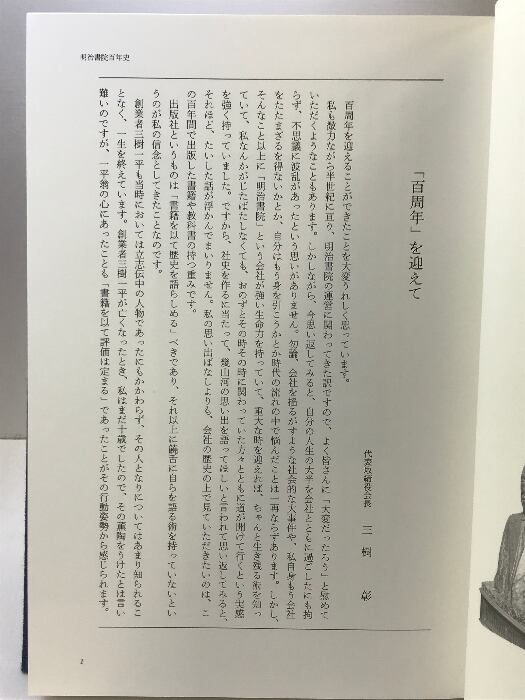 明治書院百年史
「百周年」を迎えて
代表取締役会長　三樹　彰
百周年を迎えることができたことを大変うれしく思っています。
私も微力ながら半世紀に亘り、明治書院の運営に関わってきた訳ですので、よく皆さんに「大変だったろう」と慰めて
いただくようなこともあります。しかしながら、今思い返してみると、自分の人生の大半を会社とともに過ごしたにも拘
らず、不思議に波乱があったという思いがありません。勿論、会社を揺るがすような社会的な大事件や、私自身もう会社
をたたまざるを得ないかとか、自分はもう身を引こうかとか時代の流れの中で悩んだことは一再ならずあります。しかし、
そんなこと以上に「明治書院」という会社が強い生命力を持っていて、重大な時を迎えれば、ちゃんと生き残る術を知っ
ていて、私なんかがじたばたしなくても、おのずとその時その時に関わっていた方々とともに道が開けて行くという実感
を強く持っていました。ですから、社史を作るに当たって、幾山河の思い出を語ってほしいと言われて思い返してみると、
それほど、たいした話が浮かんでまいりません。私の思い出ばなしよりも、会社の歴史の上で見ていただきたいのは、こ
の百年間で出版した書籍や教科書の持つ重みです。
出版社というものは「書籍を以て歴史を語らしめる」べきであり、それ以上に饒舌に自らを語る術を持っていたいとい
うのが私の信念としてきたことなのです。
創業者三樹一平も当時においては立志伝中の人物であったにもかかわらず、その人となりについてはあまり知られるこ
となく、一生を終えています。創業者三樹一平が亡くなったとき、私はまだ十歳でしたので、その薫陶をうけたとは言い
難いのですが、一平翁の心にあったことも「書籍を以て評価は定まる」であったことがその行動姿勢から感じられます。
1